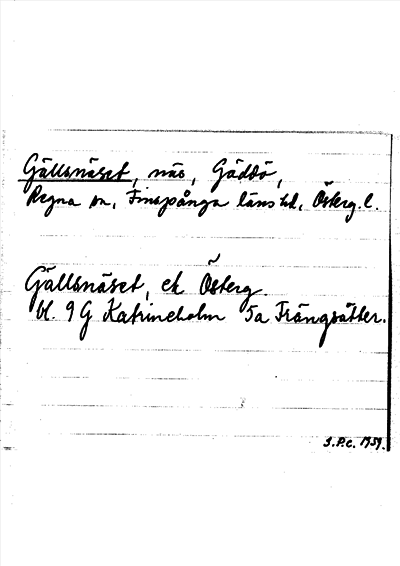 Gällsnäset, näs, Gäddö,
Regna sn, Finspånga läns hd, Österg. l.
Gällsnäset, ek Österg.
bl. 9 G Katrineholm 5a Frängsätter.
S.P.C. 1959.